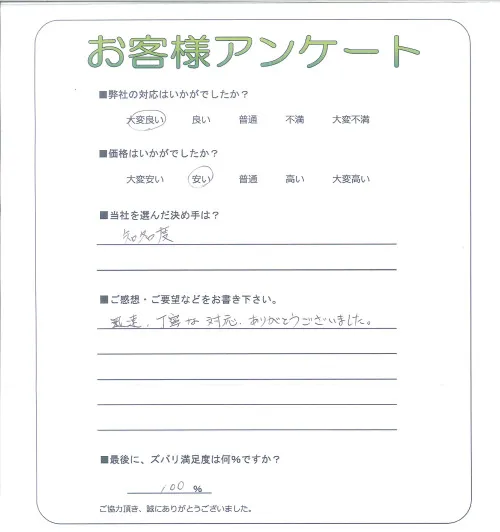 お客様アンケート
■弊社の対応はいかがでしたか？
大変良い 良い 普通 不満 大変不満
■価格はいかがでしたか？
大変安い 安い 普通 高い 大変高い
■当社を選んだ決め手は？
知名度
■ご感想・ご要望などをお書き下さい。
迅速、丁寧な対応、ありがとうございました。
■最後に、ズバリ満足度は何%ですか？
100 %
ご協力頂き、誠にありがとうございました。